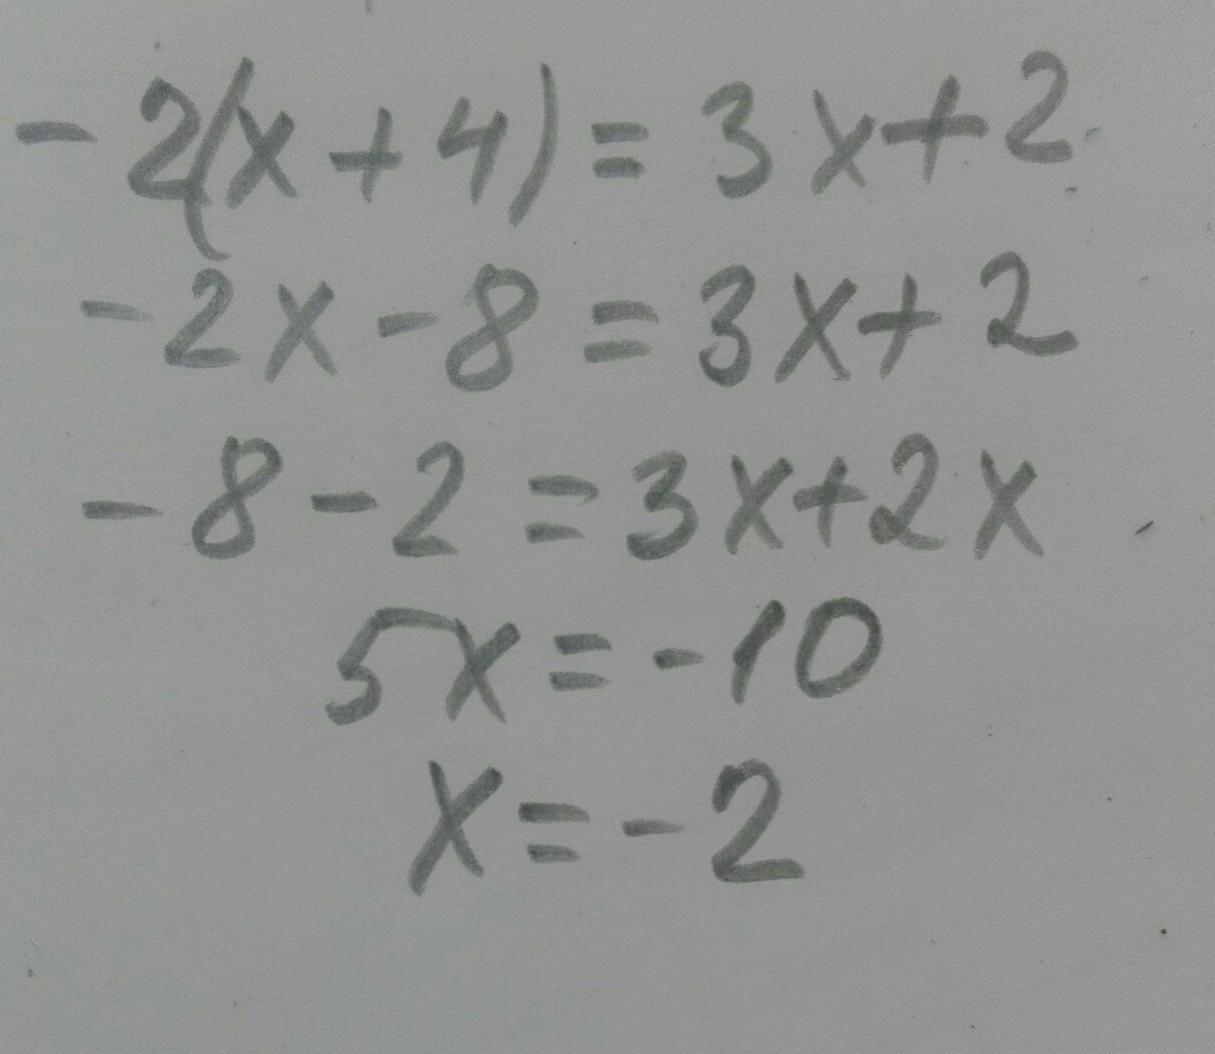 -2(x+4)=3x+2
-2x-8=3x+2
-8-2=3x+2x
5x=-10
x=-2